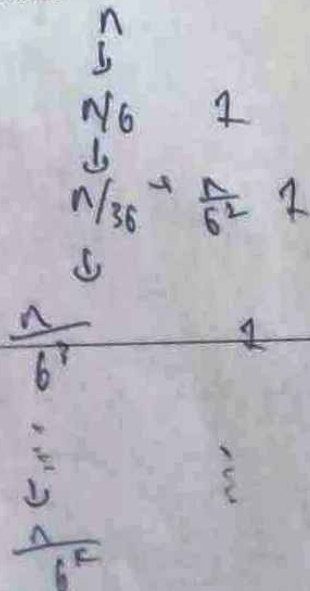 n
↓
n/6 1
↓
n/36 → n/6² 1
↓
n/6³ 1
⋮ ⋮
↓
n/6ᵏ